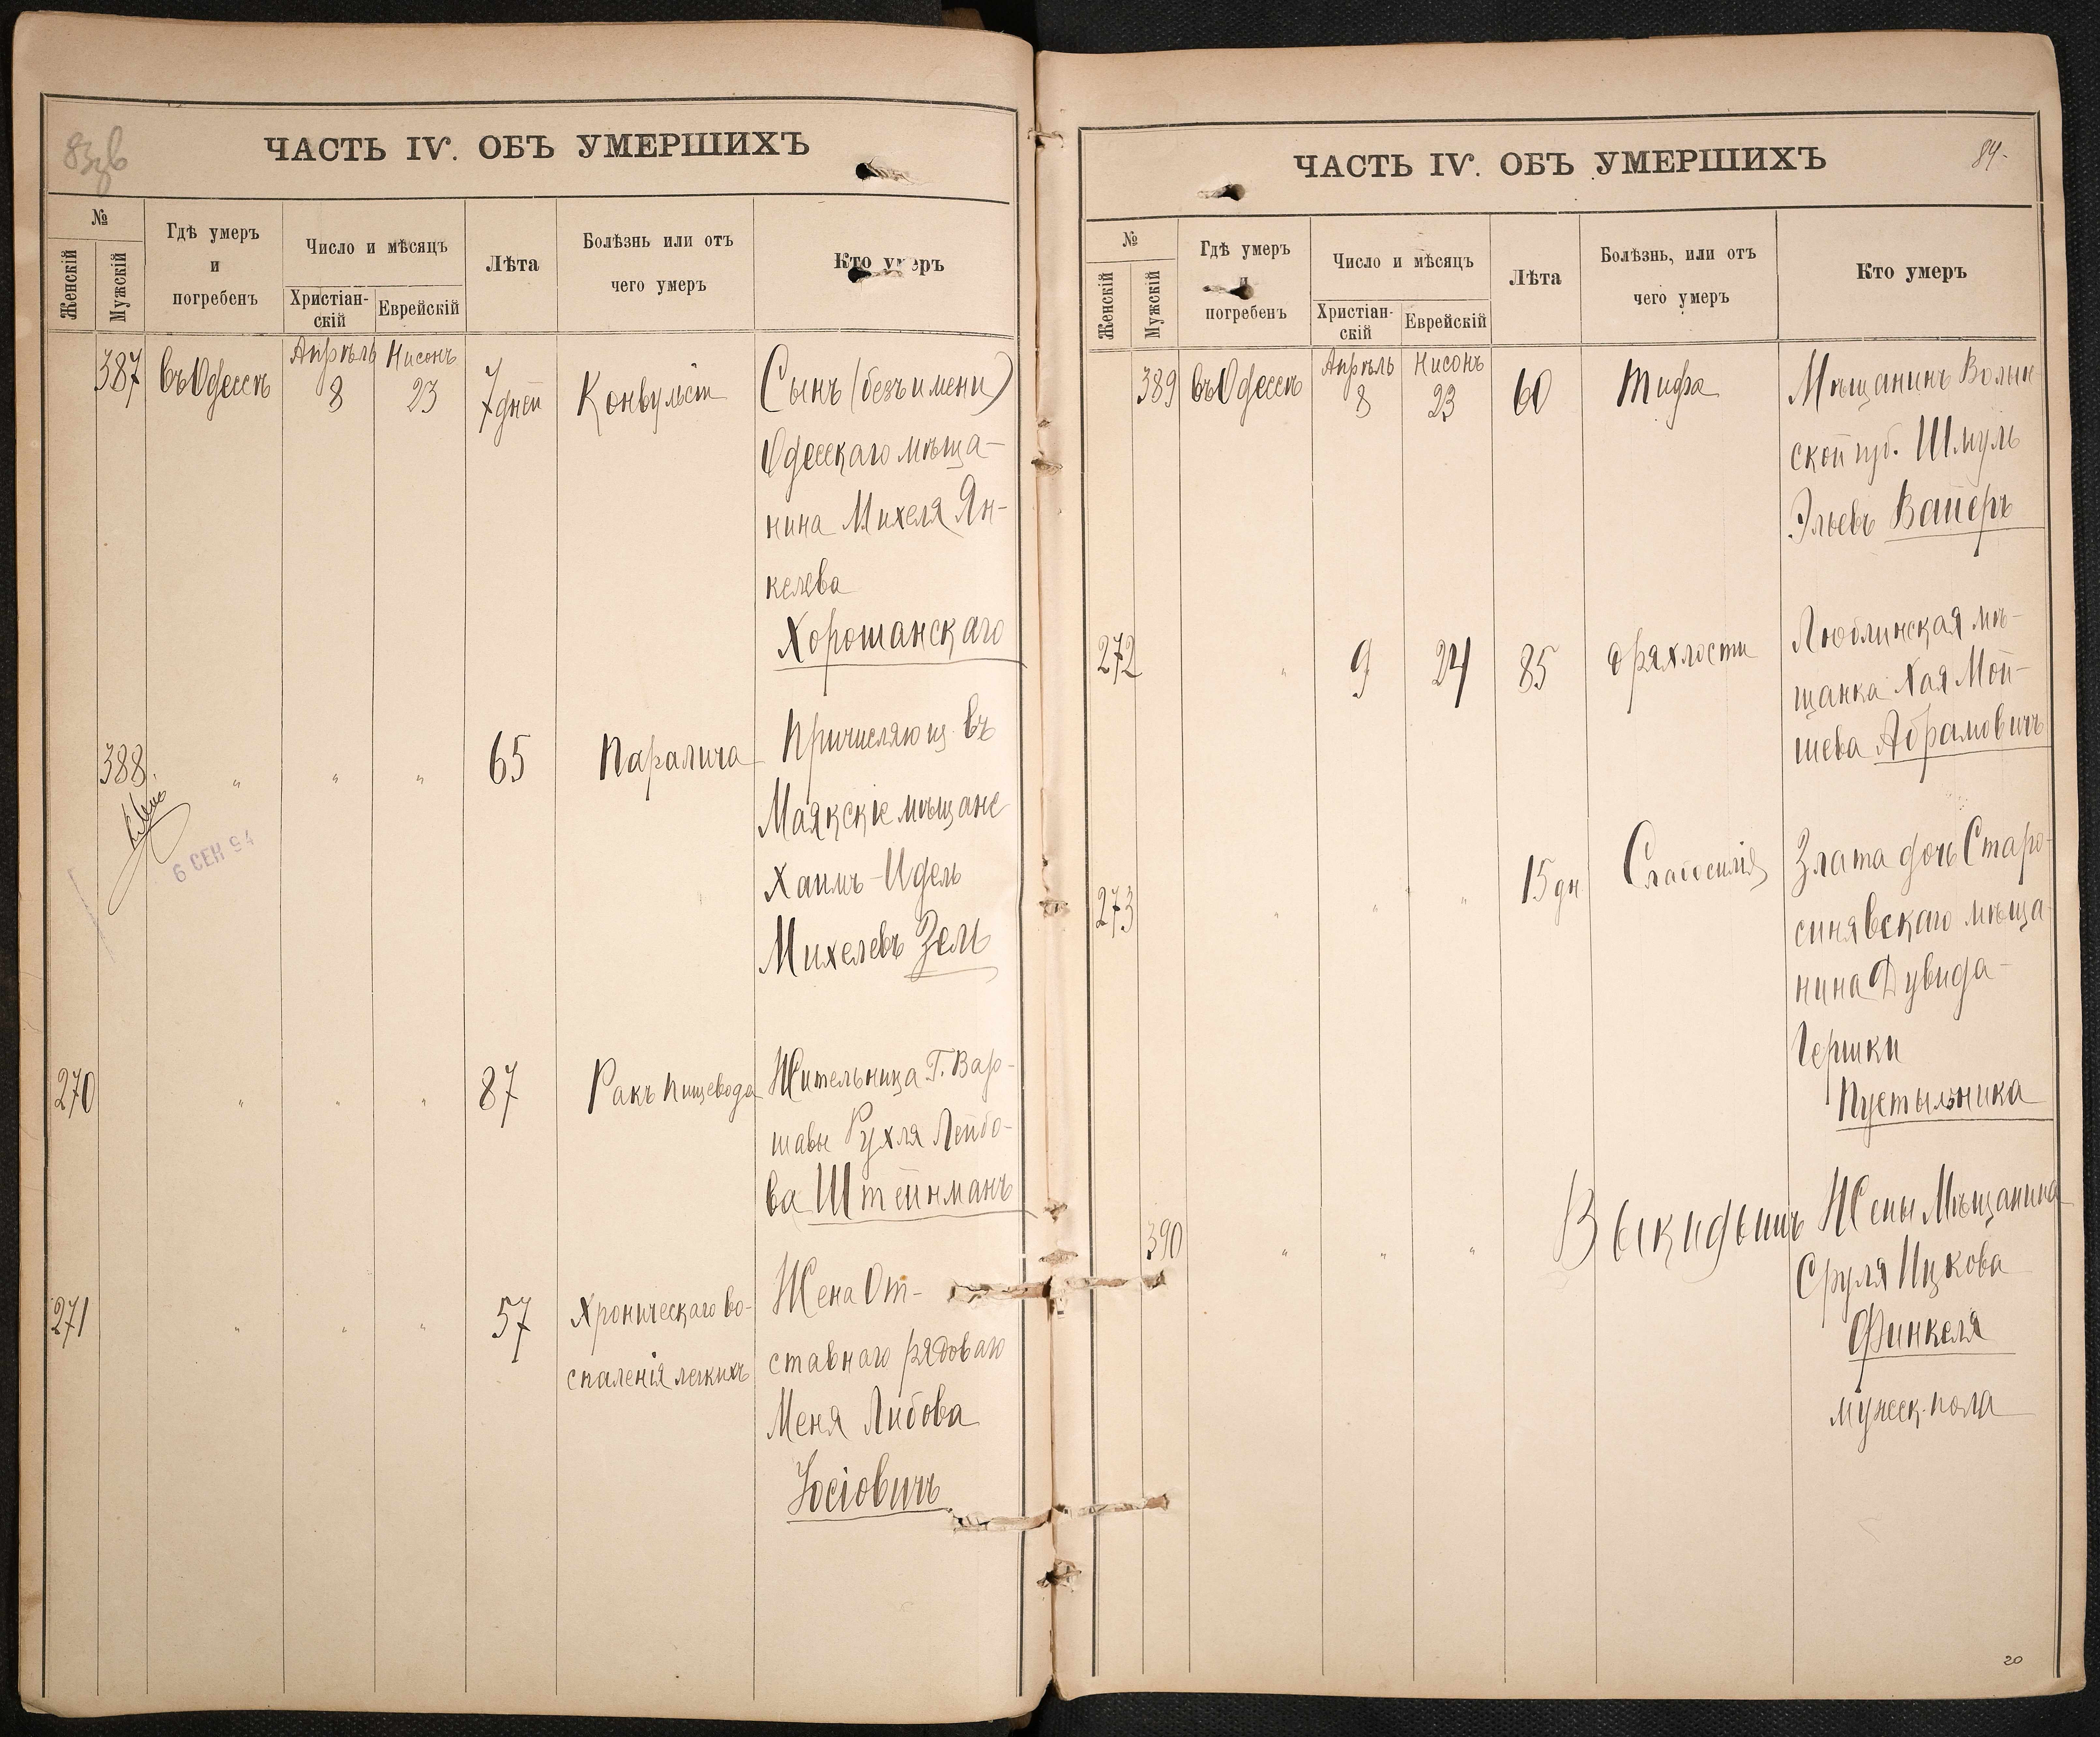 83об
ЧАСТЬ IV. ОБЪ УМЕРШИХЪ
№
Женскій
Мужскій
Гдѣ умеръ
и
погребенъ
Число и мѣсяцъ
Христіан-
скій
Еврейскій
Лѣта
Болѣзнь или отъ
чего умеръ
Кто умеръ
387 въ Одессѣ Апрѣль 8 Нисонъ 23 7 дней Конвульсіи Сынъ (безъ имени)
Одесскаго мѣща-
нина Михеля Ян-
келева
Хорошанскаго
388. " " " 65 Паралича Причисляющ. въ
Маякскіе мѣщане
Хаимъ-Идель
Михелевъ Зель
6 СЕН 94
270 " " " 87 Ракъ пищевода Жительница Г. Вар-
шавы Рухля Лейбо-
ва Штейнманъ
271 " " " 57 Хроническаго во- Жена От-
спаленія легкихъ ставнаго рядоваго
Меня Либова
Іосіовичъ
84.
ЧАСТЬ IV. ОБЪ УМЕРШИХЪ
№
Женскій
Мужскій
Гдѣ умеръ
и
погребенъ
Число и мѣсяцъ
Христіан-
скій
Еврейскій
Лѣта
Болѣзнь, или отъ
чего умеръ
Кто умеръ
389 въ Одессѣ Апрѣль 8 Нисонъ 23 60 Тифа Мѣщанинъ Волын
ской губ. Шмуль
Эльевъ Вайеръ
272 " 9 24 85 дряхлости Люблинская мѣ-
щанка Хая Мой-
шева Абрамовичъ
273 " " " 15 дн Слабосилія Злата дочь Старо-
синявскаго мѣща
нина Дувида-
Гершки
Пустыльника
390 " " " Выкидышъ Жены Мѣщанина
Сруля Ицкова
Финкеля
мужеск. пола
20